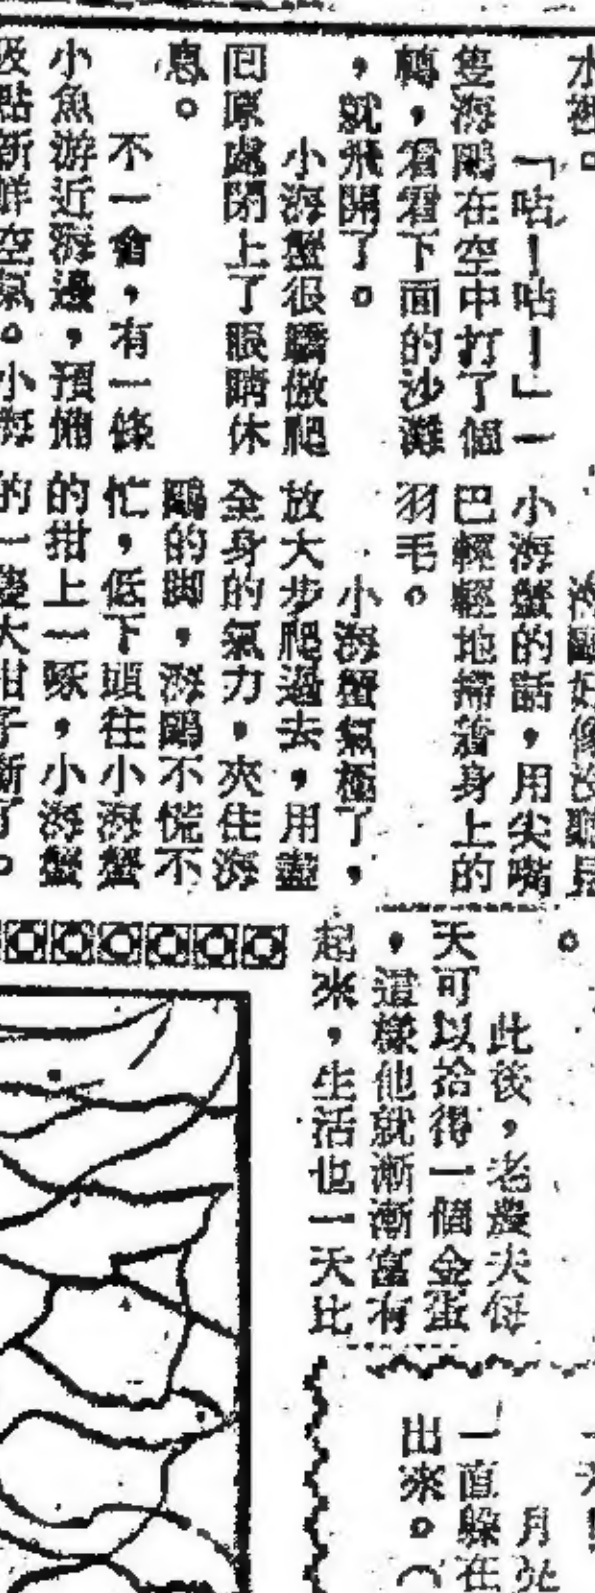 水裡。
「咕！咕！」一
隻海鷗在空中打了個
轉，看看下面的沙灘
，就飛開了。
小海蟹很驕傲爬
回原處閉上了眼睛休
息。
不一會，有一條
小魚游近海邊，預備
吸點新鮮空氣。小海
海鷗好像沒聽見
小海蟹的話，用尖嘴
巴輕輕地掃着身上的
羽毛。
小海蟹氣極了，
放大步爬過去，用盡
全身的氣力，夾住海
鷗的脚，海鷗不慌不
忙，低下頭往小海蟹
的拑上一啄，小海蟹
的一雙大拑子斷了。
。
此後，老農夫每
天可以拾得一個金蛋
，這樣他就漸漸富有
起來，生活也一天比
一天
月光
一直躲在
出來。（